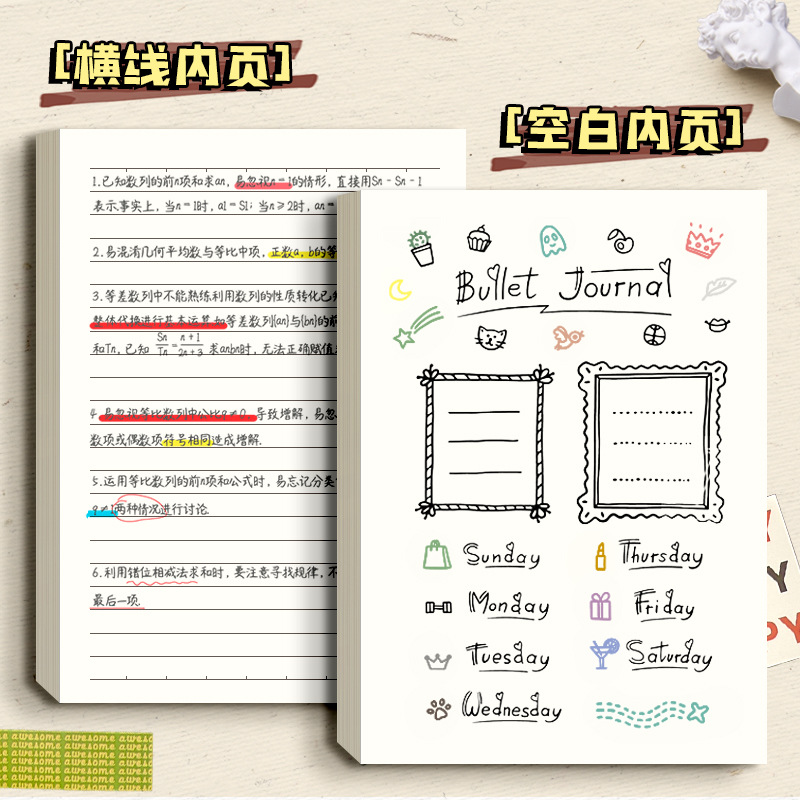 [横线内页]
[空白内页]
1.已知数列的前n项和求an,易忽视n=1的情形,直接用Sn-Sn-1
表示事实上,当n=1时,a1=S1;当n≥2时,an=
2.易混淆几何平均数与等比中项,正数a,b的等
3.等差数列中不能熟练利用数列的性质转化已知
整体代换进行基本运算.如等差数列{an}与{bn}的前
和Tn,已知 Sn/Tn=n+1/2n+3 求anbn时,无法正确赋值
4 易忽视等比数列中公比q≠0,导致增解,易忽
数项或偶数项符号相同造成增解.
5.运用等比数列的前n项和公式时,易忘记分类
q≠1两种情况进行讨论.
6.利用错位相减法求和时,要注意寻找规律,不
最后一项.
Bullet Journal
Sunday
Thursday
Monday
Friday
Tuesday
Saturday
Wednesday
awesome awesome awesome
awesome awesome awesome
awesome awesome awesome
awesome awesome awesome